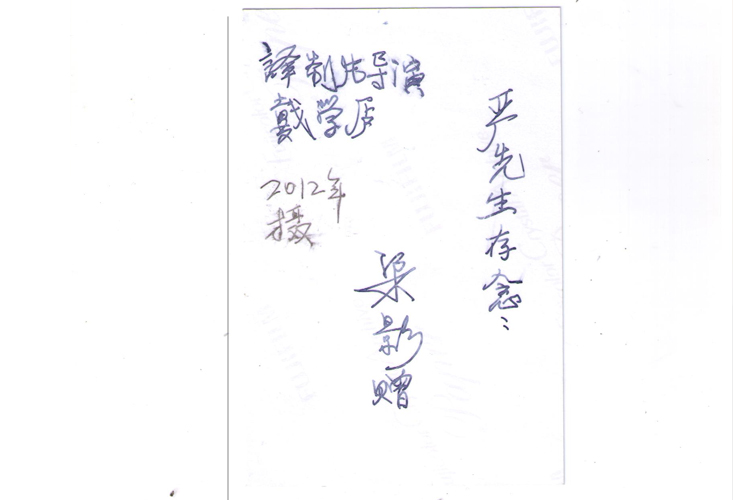 譯制片导演
戴学庐
2012年
摄
严先生存念:
梁影赠